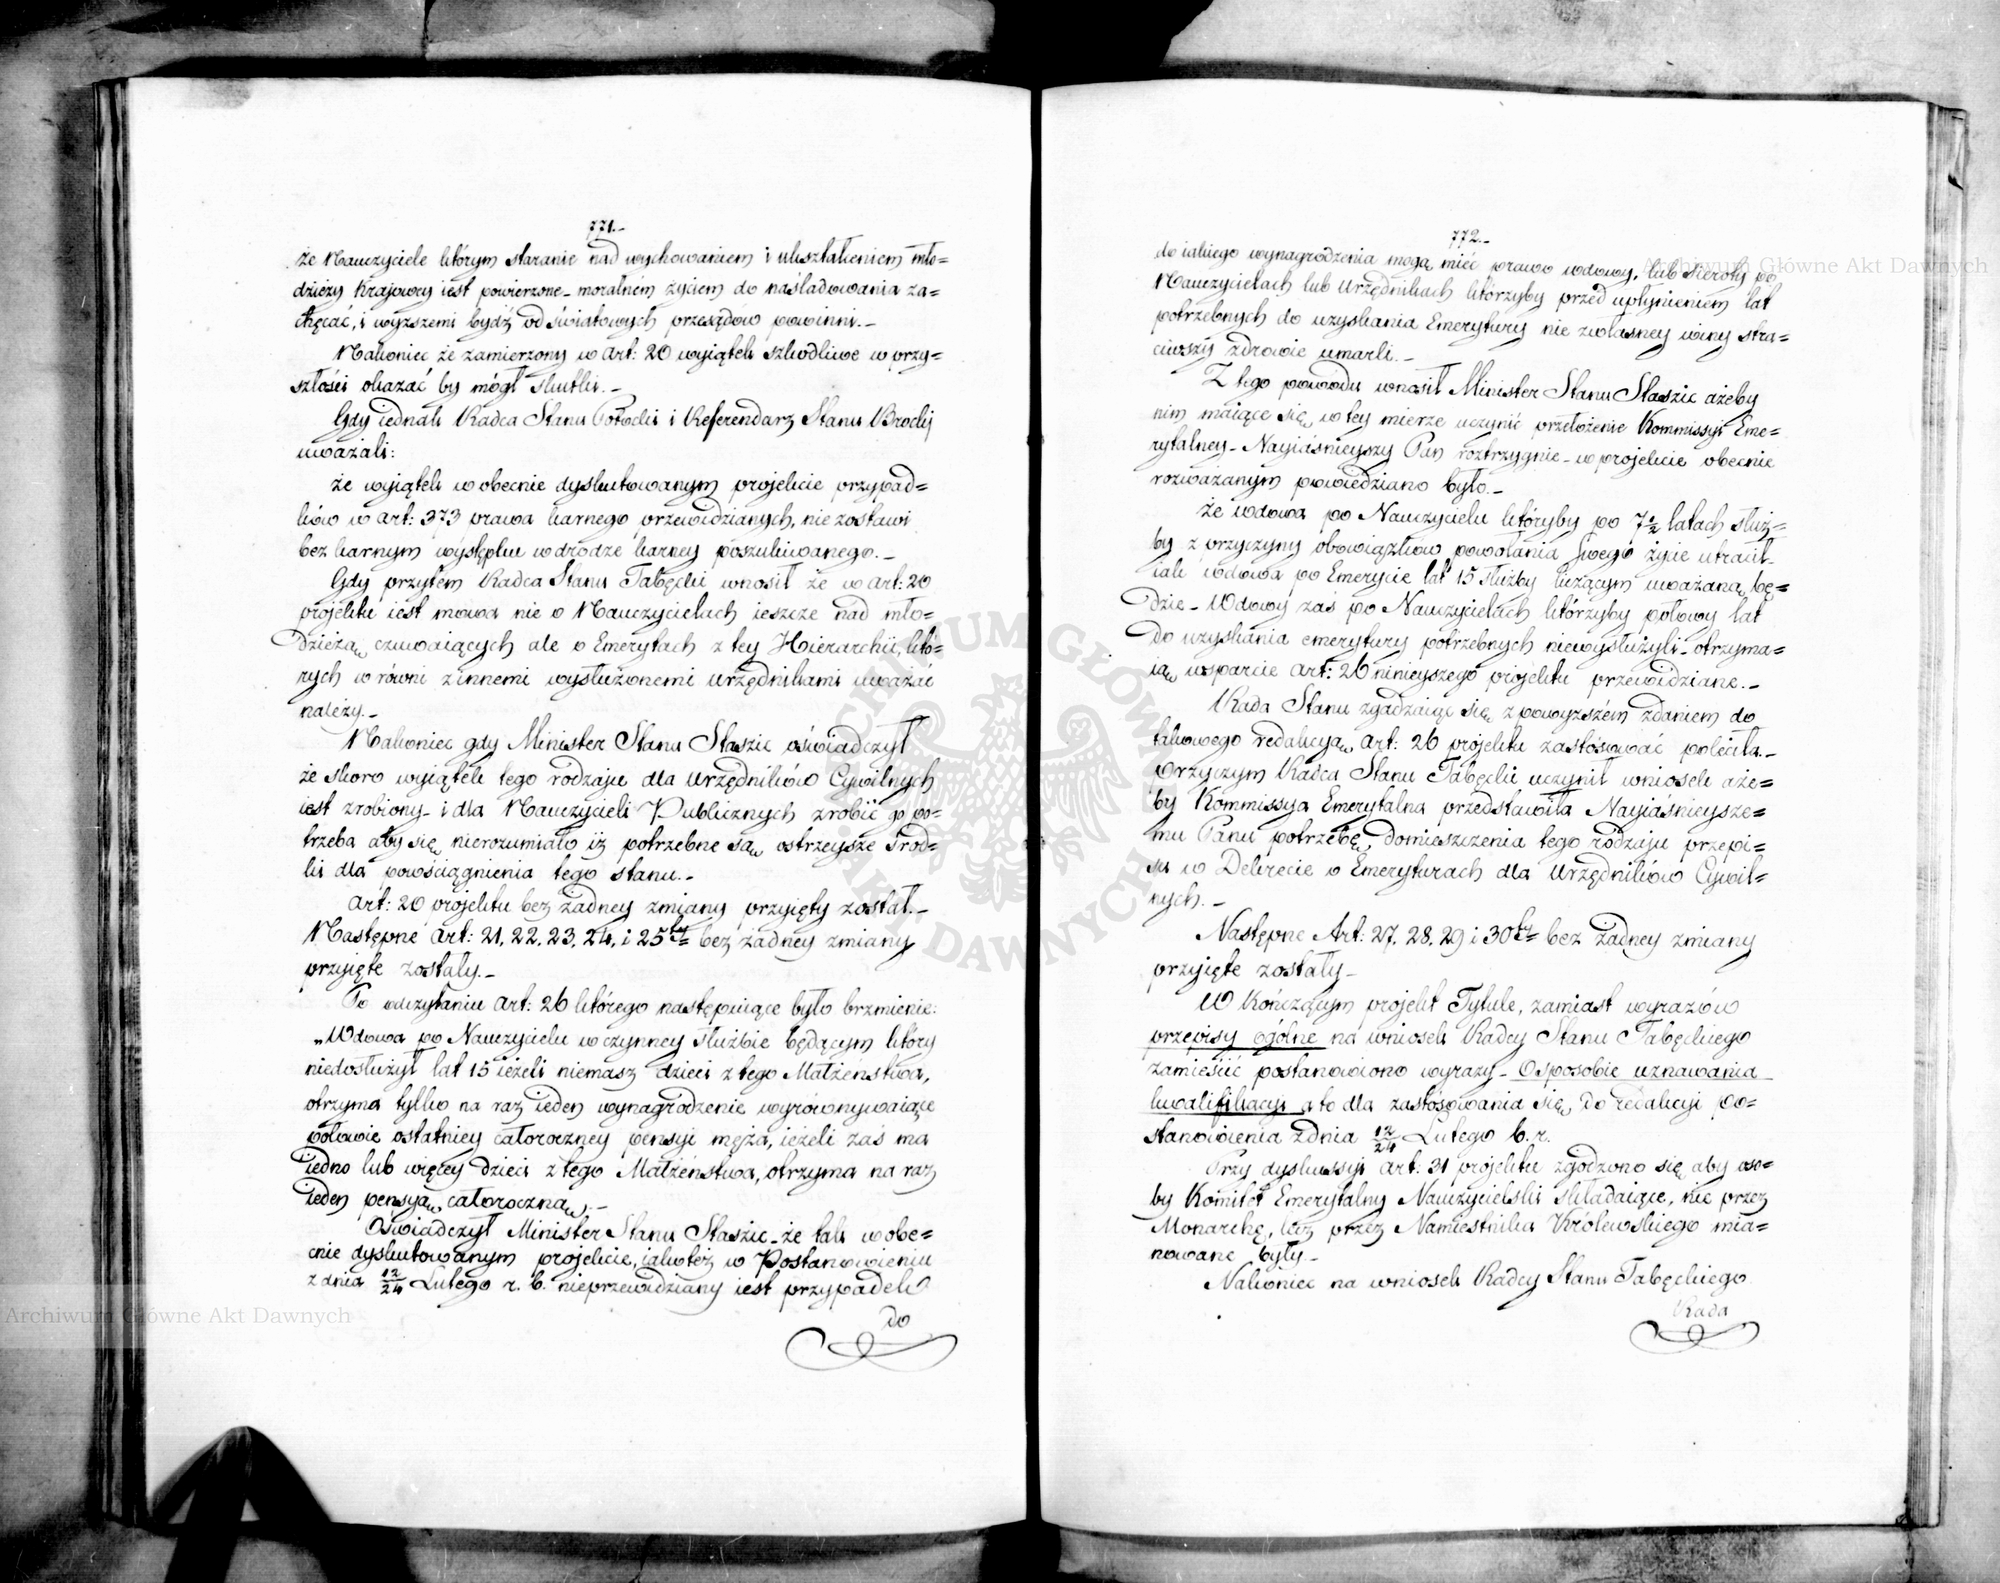 771.-
że Nauczyciele którym staranie nad wychowaniem i ukształceniem mło=
dzieży Krajowey iest powierzone - moralnem życiem do naśladowania za=
chęcać, i wyższemi bydź od światowych przesądow powinni.-
Nakoniec że zamierzony w Art: 20 wyiątek szkodliwe w przy=
szłości okazać by mógł skutki.-
Gdy iednak Radca Stanu Potocki i Referendarz Stanu Brocky
uważali:
że wyiątek w obecnie dyskutowanym projekcie przypad=
ków w Art: 373 prawa karnego przewidzianych, nie zostawi
bez karnym występku w drodze karney poszukiwanego.-
Gdy przytem Radca Stanu Tabęcki wnosił że w Art: 20
projektu iest mowa nie o Nauczycielach ieszcze nad mło=
dzieżą czuwaiących ale o Emerytach z tey Hierarchii, któ=
rych w równi z innemi wysłużonemi urzędnikami uważać
należy.-
Nakoniec gdy Minister Stanu Staszic oświadczył
że skoro wyiątek tego rodzaju dla Urzędników Cywilnych
iest zrobiony - i dla Nauczycieli Publicznych zrobić go po=
trzeba aby się nierozumiało iż potrzebne są ostrzeysze Środ=
ki dla powściągnienia tego stanu.-
Art: 20 projektu bez żadney zmiany przyięty został.-
Następne Art: 21, 22, 23, 24, i 25ty bez żadney zmiany
przyięte zostały.-
Po odczytaniu Art: 26 którego następuiące było brzmienie:
„Wdowa po Nauczycielu w czynney służbie będącym który
niedosłużył lat 15 ieżeli niemasz dzieci z tego Małżenstwa,
otrzyma tylko na raz ieden wynagrodzenie wyrównywaiące
połowie ostatniey całoroczney pensyi męża, ieżeli zaś ma
iedno lub więcey dzieci z tego Małżeństwa, otrzyma na raz
ieden pensyą całoroczną.-
Oświadczył Minister Stanu Staszic - że tak w obe=
cnie dyskutowanym projekcie, iakoteż w Postanowieniu
z dnia 12/24 Lutego r. b. nieprzewidziany iest przypadek
do
772.-
do iakiego wynagrodzenia mogą mieć prawo wdowy, lub sieroty po
Nauczycielach lub Urzędnikach którzyby przed upłynieniem lat
potrzebnych do uzyskania Emerytury nie z własney winy stra=
ciwszy zdrowie umarli.-
Z tego powodu wnosił Minister Stanu Staszic ażeby
nim maiące się w tey mierze uczynić przełożenie Kommissyi Eme=
rytalney - Nayiaśnieyszy Pan roztrzygnie - w projekcie obecnie
rozważanym powiedziano było.-
że wdowa po Nauczycielu któryby po 7 1/2 latach służ=
by z przyczyny obowiązków powołania swego życie utracił -
iak wdowa po Emerycie lat 15 służby liczącym uważaną bę=
dzie - Wdowy zaś po Nauczycielach którzyby połowy lat
do uzyskania emerytury potrzebnych niewysłużyli - otrzyma=
ią wsparcie Art: 26 ninieyszego projektu przewidziane.-
Rada Stanu zgadzaiąc się z powyższem zdaniem do
takowego redakcyą Art: 26 projektu zastósować poleciła.-
przyczym Radca Stanu Tabęcki uczynił wniosek aże=
by Kommissya Emerytalna przedstawiła Nayiaśnieysze=
mu Panu potrzebę domieszczenia tego rodzaju przepi=
su w Dekrecie o Emeryturach dla Urzędników Cywil=
nych.-
Następne Art: 27, 28, 29 i 30ty bez żadney zmiany
przyięte zostały -
W Kończącym projekt Tytule, zamiast wyrazów
przepisy ogólne na wniosek Radcy Stanu Tabęckiego
zamieścić postanowiono wyrazy - O sposobie uznawania
kwalifikacyi a to dla zastósowania się do redakcyi po=
stanowienia z dnia 12/24 Lutego b. r.
Przy dyskussyi Art: 31 projektu zgodzono się aby oso=
by Komitet Emerytalny Nauczycielski składaiące, nie przez
Monarchę, lecz przez Namiestnika Królewskiego mia=
nowane były.-
Nakoniec na wniosek Radcy Stanu Tabęckiego
Rada
Archiwum Główne Akt Dawnych
Archiwum Główne Akt Dawnych
ARCHIWUM GŁÓWNE AKT DAWNYCH